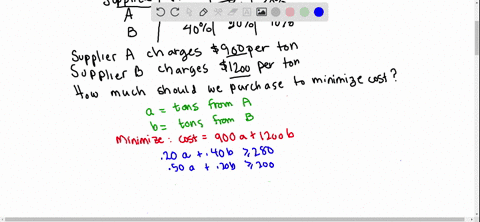 Supplier
A
B 40% 20% 10%
Supplier A charges $900 per ton
Supplier B charges $1200 per ton
How much should we purchase to minimize cost?
a = tons from A
b = tons from B
Minimize: cost = 900 a + 1200 b
.20 a + .40 b ≥ 280
.50 a + .20 b ≥ 200